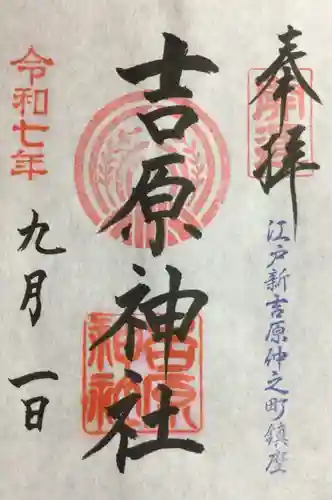 奉拝
江戸新吉原仲之町鎮座
吉原神社
吉原神社
令和七年
九月一日